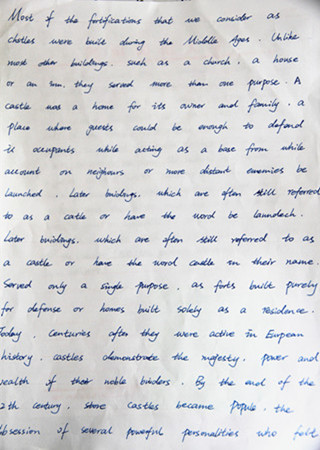 Most of the fortifications that we consider as
chstles were built during the Middle Ages. Unlike
most other buildings. such as a church. a house
or an inn. they served more than one purpose. A
castle was a home for its owner and family. a
place where guests could be enough to defand
is occupants while acting as a base from while
account on neighours or more distant enemies be
launched. Later buidings. which are often still referred
to as a catle or have the word be laundech.
Later buidings. which are often still referred to as
a castle or have the word castle in their name.
Served only a single purpose. as forts built purely
for defense or homes built solely as a residence.
Today. Centuries after they were active in Eurpean
history. castles demonstrate the majesty. power and
wealth of their noble binders. By the end of the
2th century. stone castles became Popule. the
bsession of several powerful personalities who felt